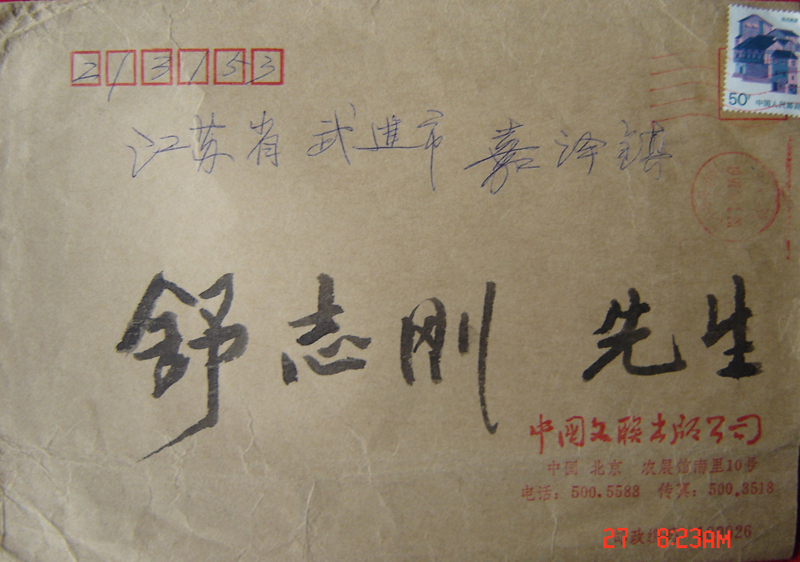 213153
50分 中国人民邮政
江苏省 武进市 嘉泽镇
舒志刚 先生
中国文联出版公司
中国 北京 农展馆南里10号
电话：500.5588 传真：500.3518
邮政编
27 8:23AM